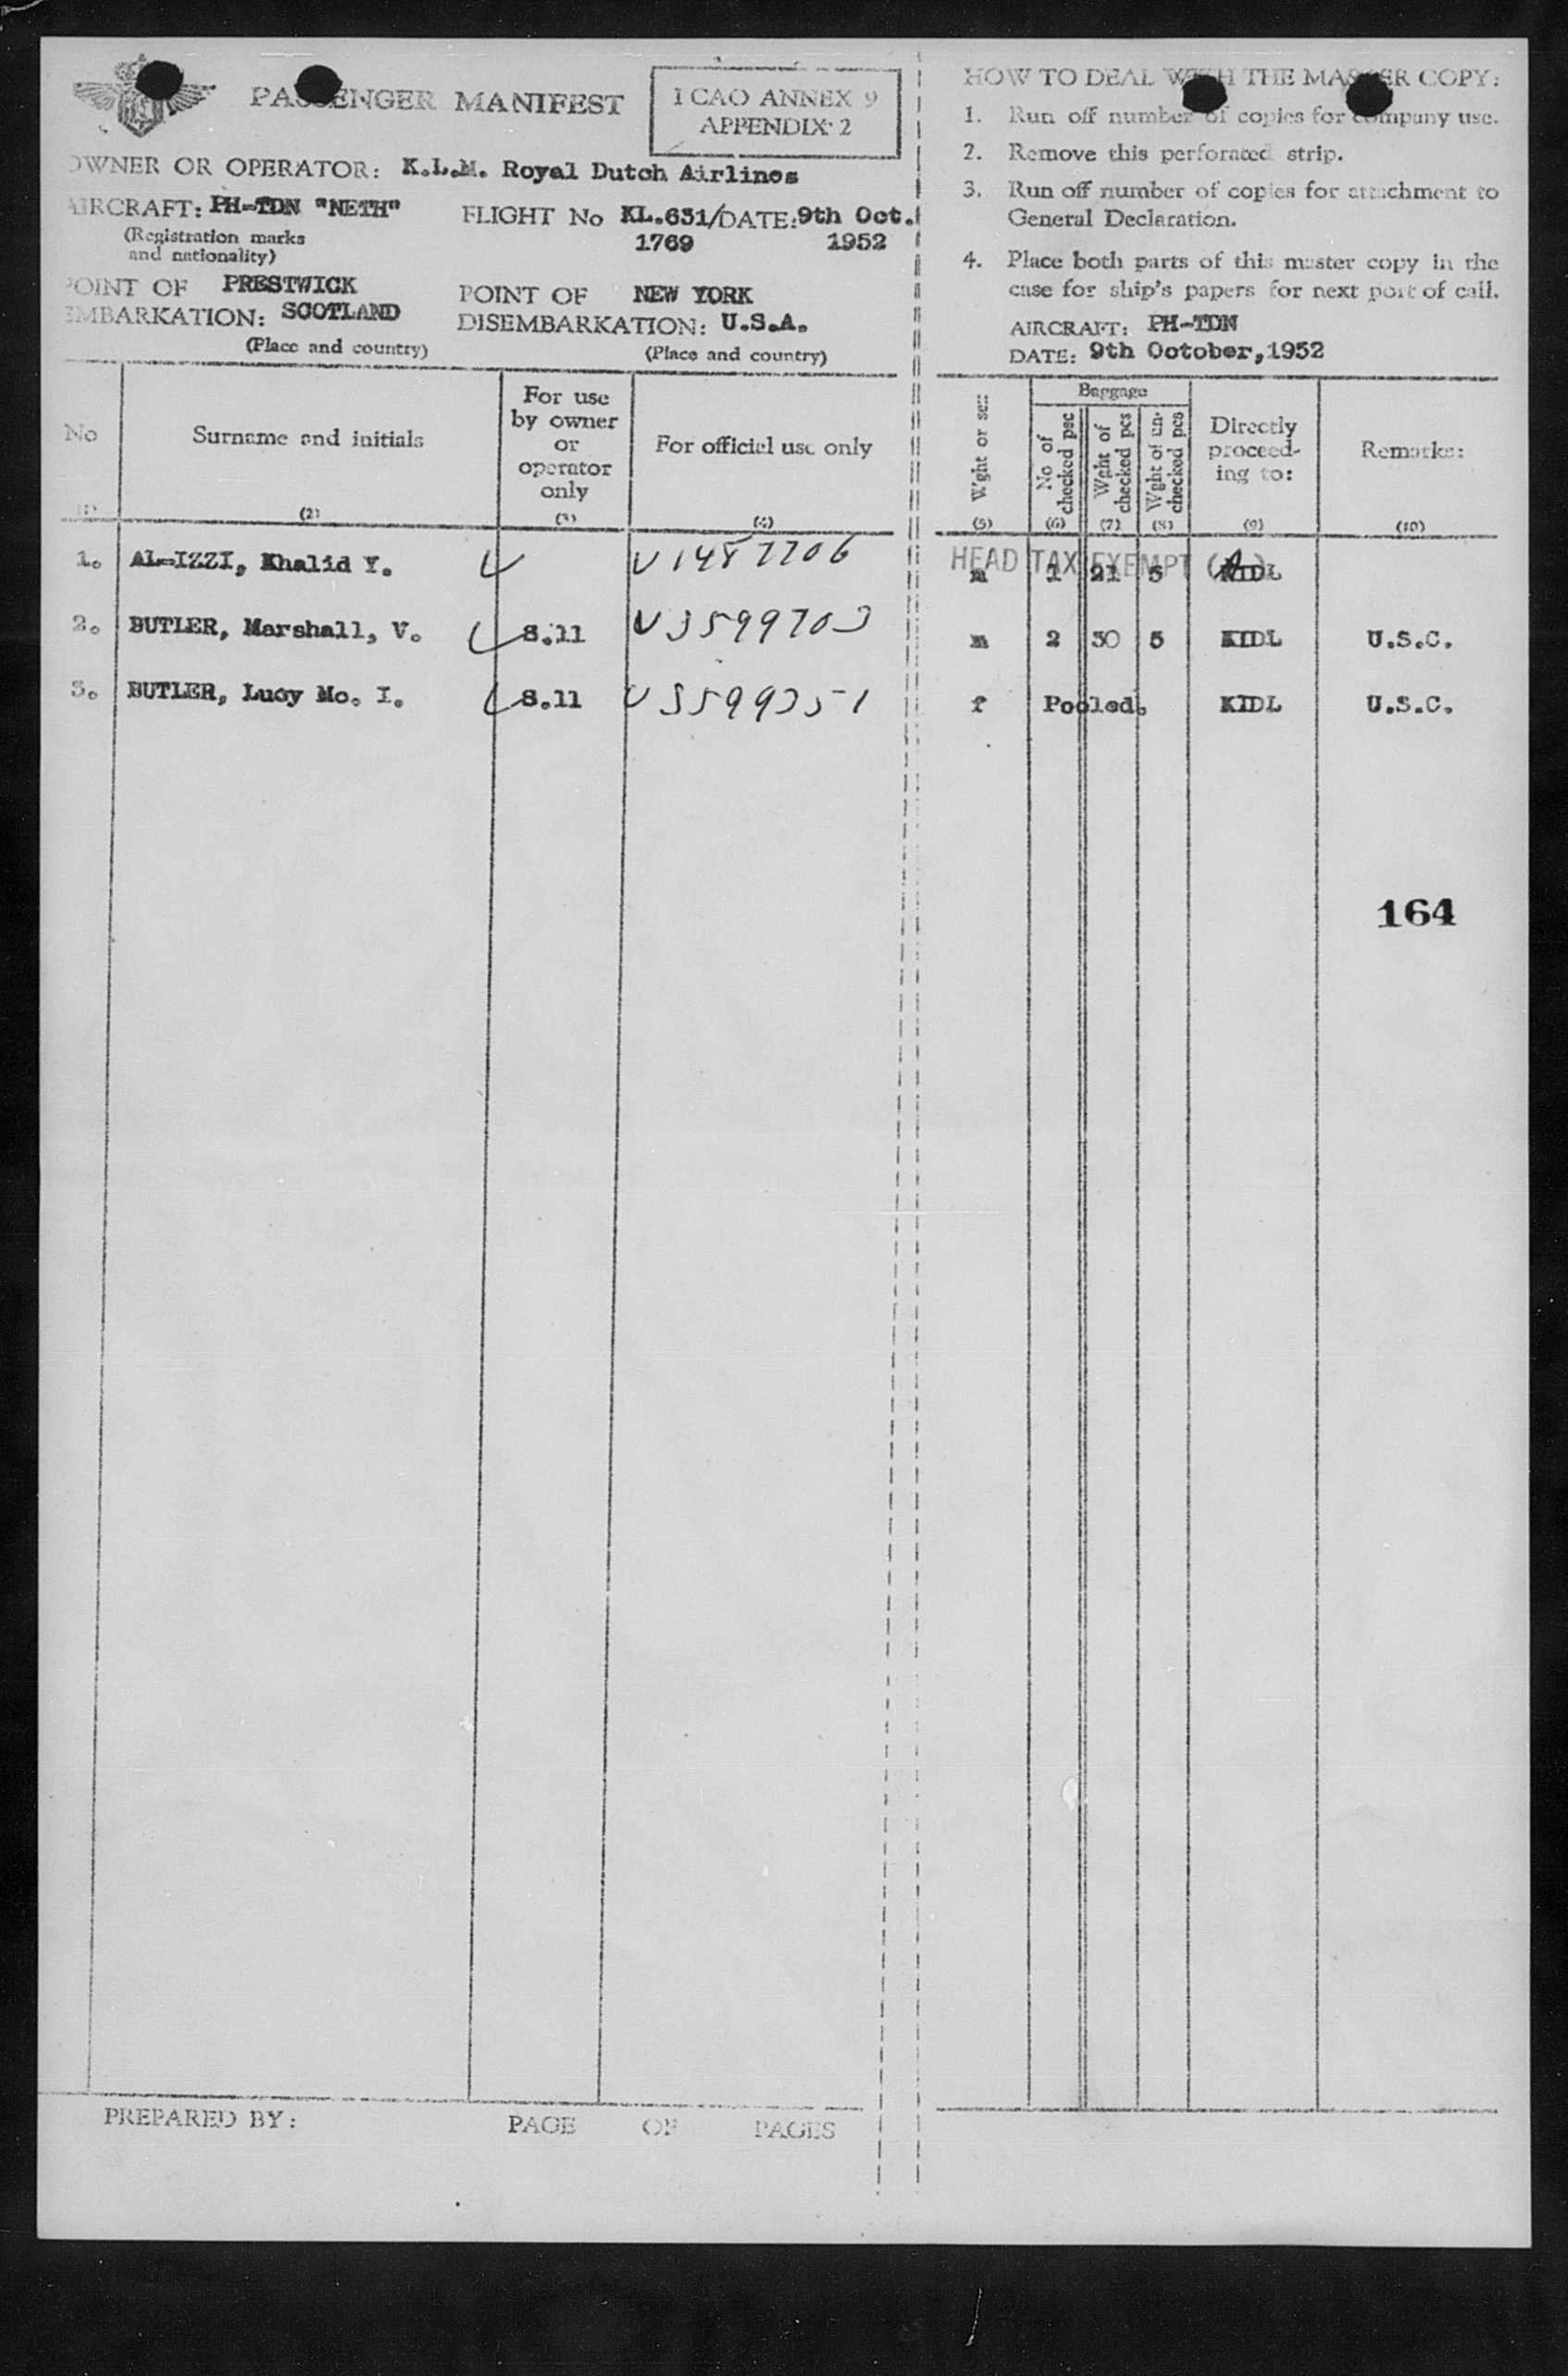 PASSENGER MANIFEST
I CAO ANNEX 9
APPENDIX 2
OWNER OR OPERATOR: K.L.M. Royal Dutch Airlines
AIRCRAFT: PH-TDN "NETH"
(Registration marks
and nationality)
FLIGHT No KL.631/ DATE: 9th Oct.
1769 1952
POINT OF PRESTWICK
EMBARKATION: SCOTLAND
(Place and country)
POINT OF NEW YORK
DISEMBARKATION: U.S.A.
(Place and country)
No
(1)
Surname and initials
(2)
For use
by owner
or
operator
only
(3)
For official use only
(4)
1. AL-IZZI, Khalid Y. V1487706
2. BUTLER, Marshall, V. S.11 V3599703
3. BUTLER, Lucy Mc. I. S.11 V3599751
PREPARED BY: PAGE OF PAGES
HOW TO DEAL WITH THE MASTER COPY:
1. Run off number of copies for company use.
2. Remove this perforated strip.
3. Run off number of copies for attachment to
General Declaration.
4. Place both parts of this master copy in the
case for ship's papers for next port of call.
AIRCRAFT: PH-TDN
DATE: 9th October, 1952
Wght or sex
(5)
Baggage
No of
checked pec
(6)
Wght of
checked pcs
(7)
Wght of un-
checked pcs
(8)
Directly
proceed-
ing to:
(9)
Remarks:
(10)
HEAD TAX EXEMPT (A)
m 1 21 5 KIDL
m 2 30 5 KIDL U.S.C.
f Pooled. KIDL U.S.C.
164